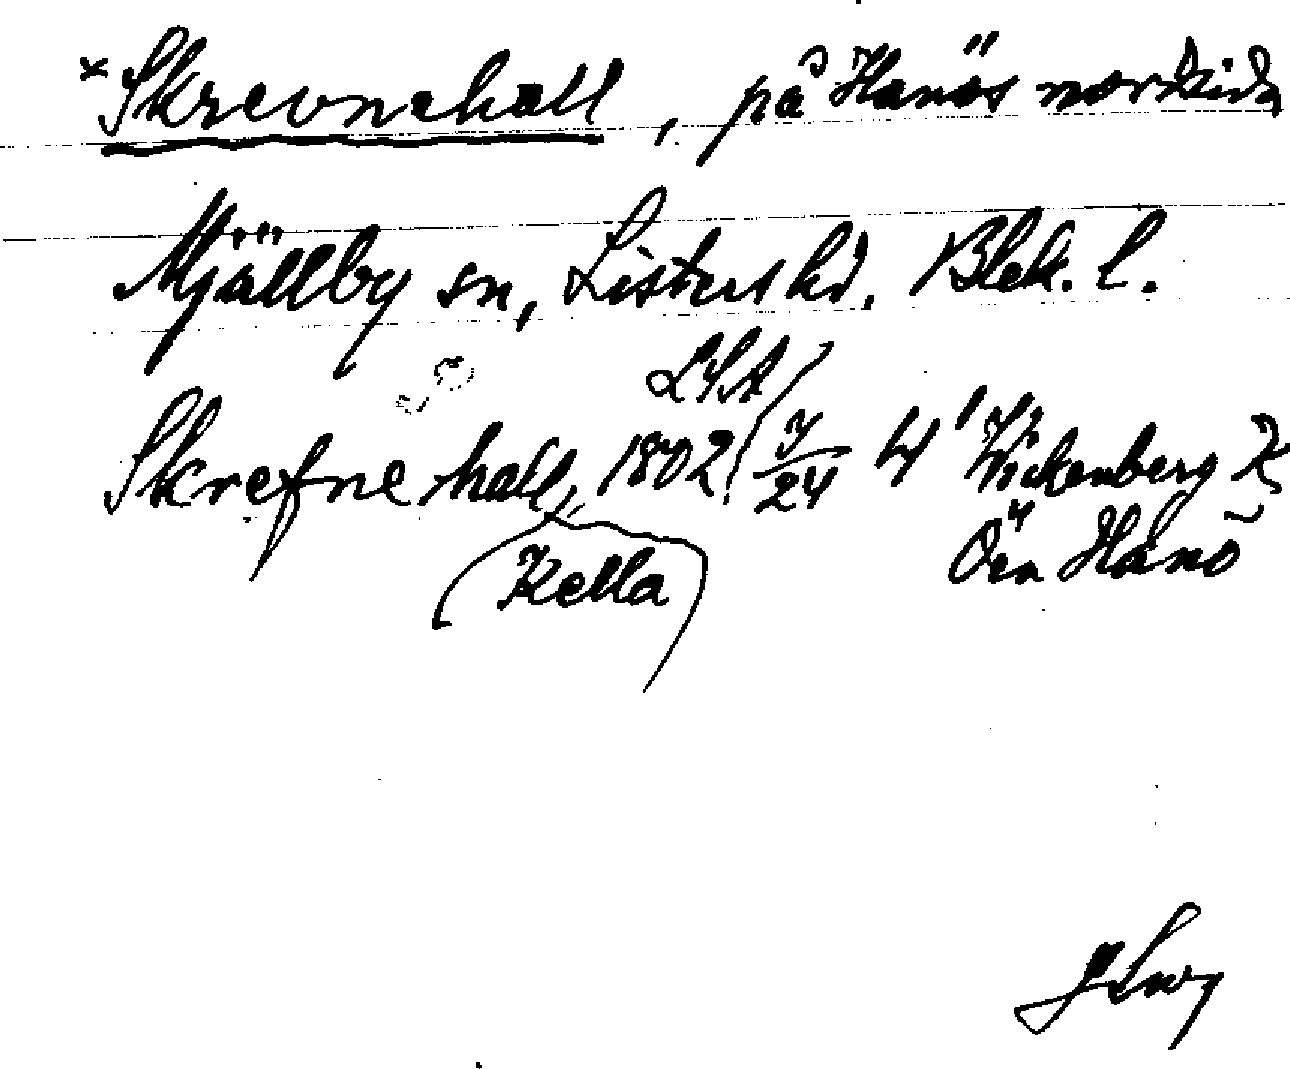 *Skrevnehall, på Hanös nordsida
Mjällby sn, Listers hd. Blek. l.
LSA
Skrefne hall, 1802 7/24 4' Wickenberg K
Ön Hanö
(Kella)